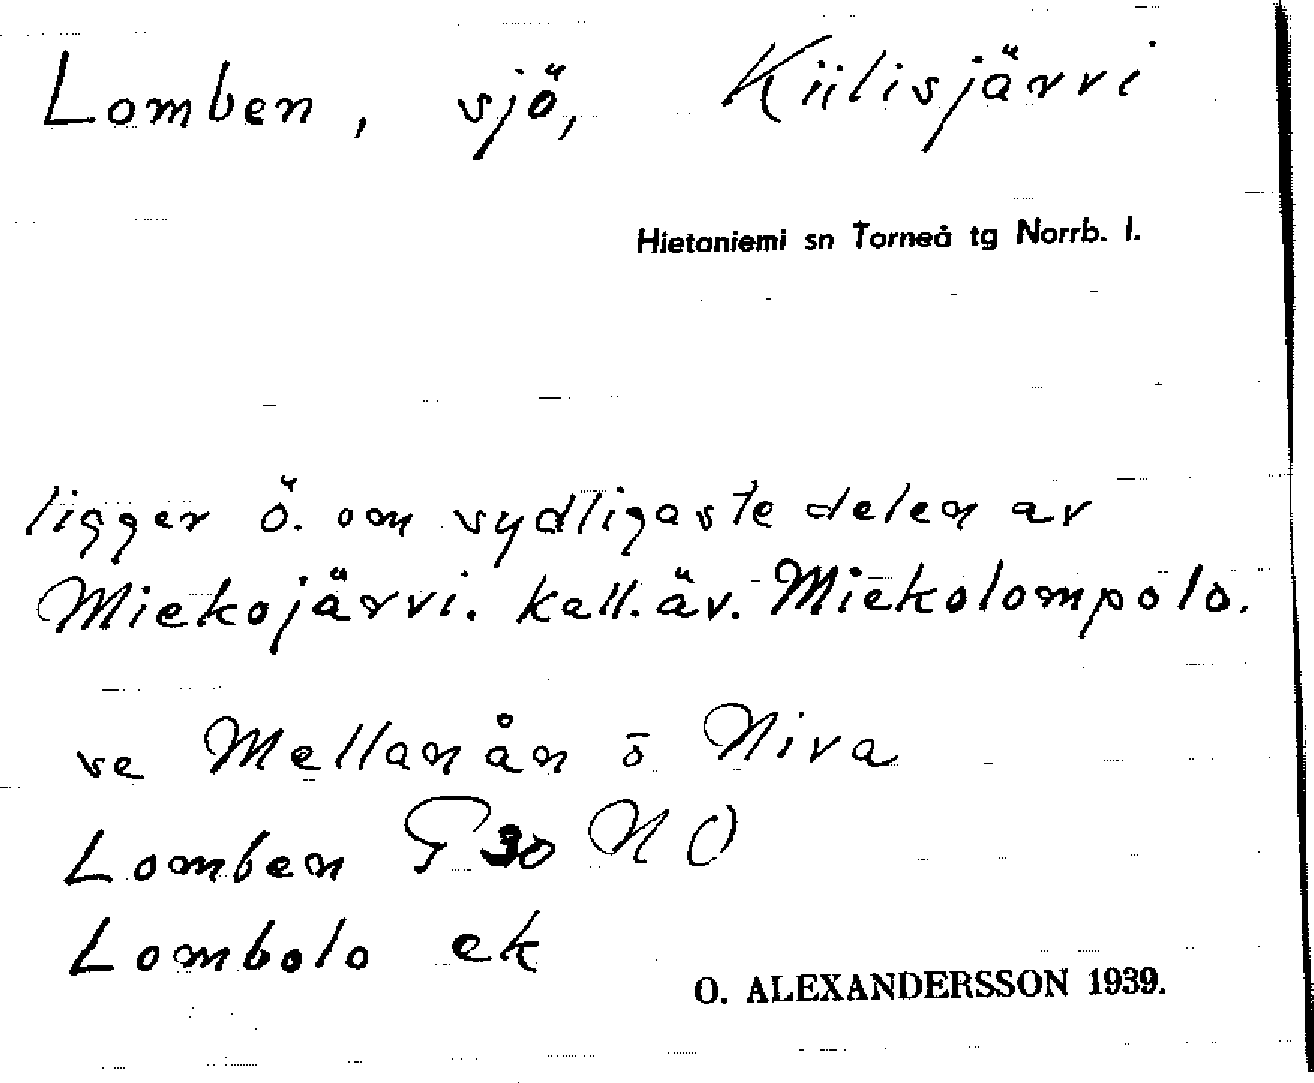 Lomben, sjö, Kiilisjärvi
Hietaniemi sn Torneå tg Norrb. l.
ligger ö. om sydligaste delen av
Miekojärvi. kall. äv. Miekolompolo.
se Mellanån o Niva
Lomben G 30 NO
Lombolo ek
O. ALEXANDERSSON 1939.